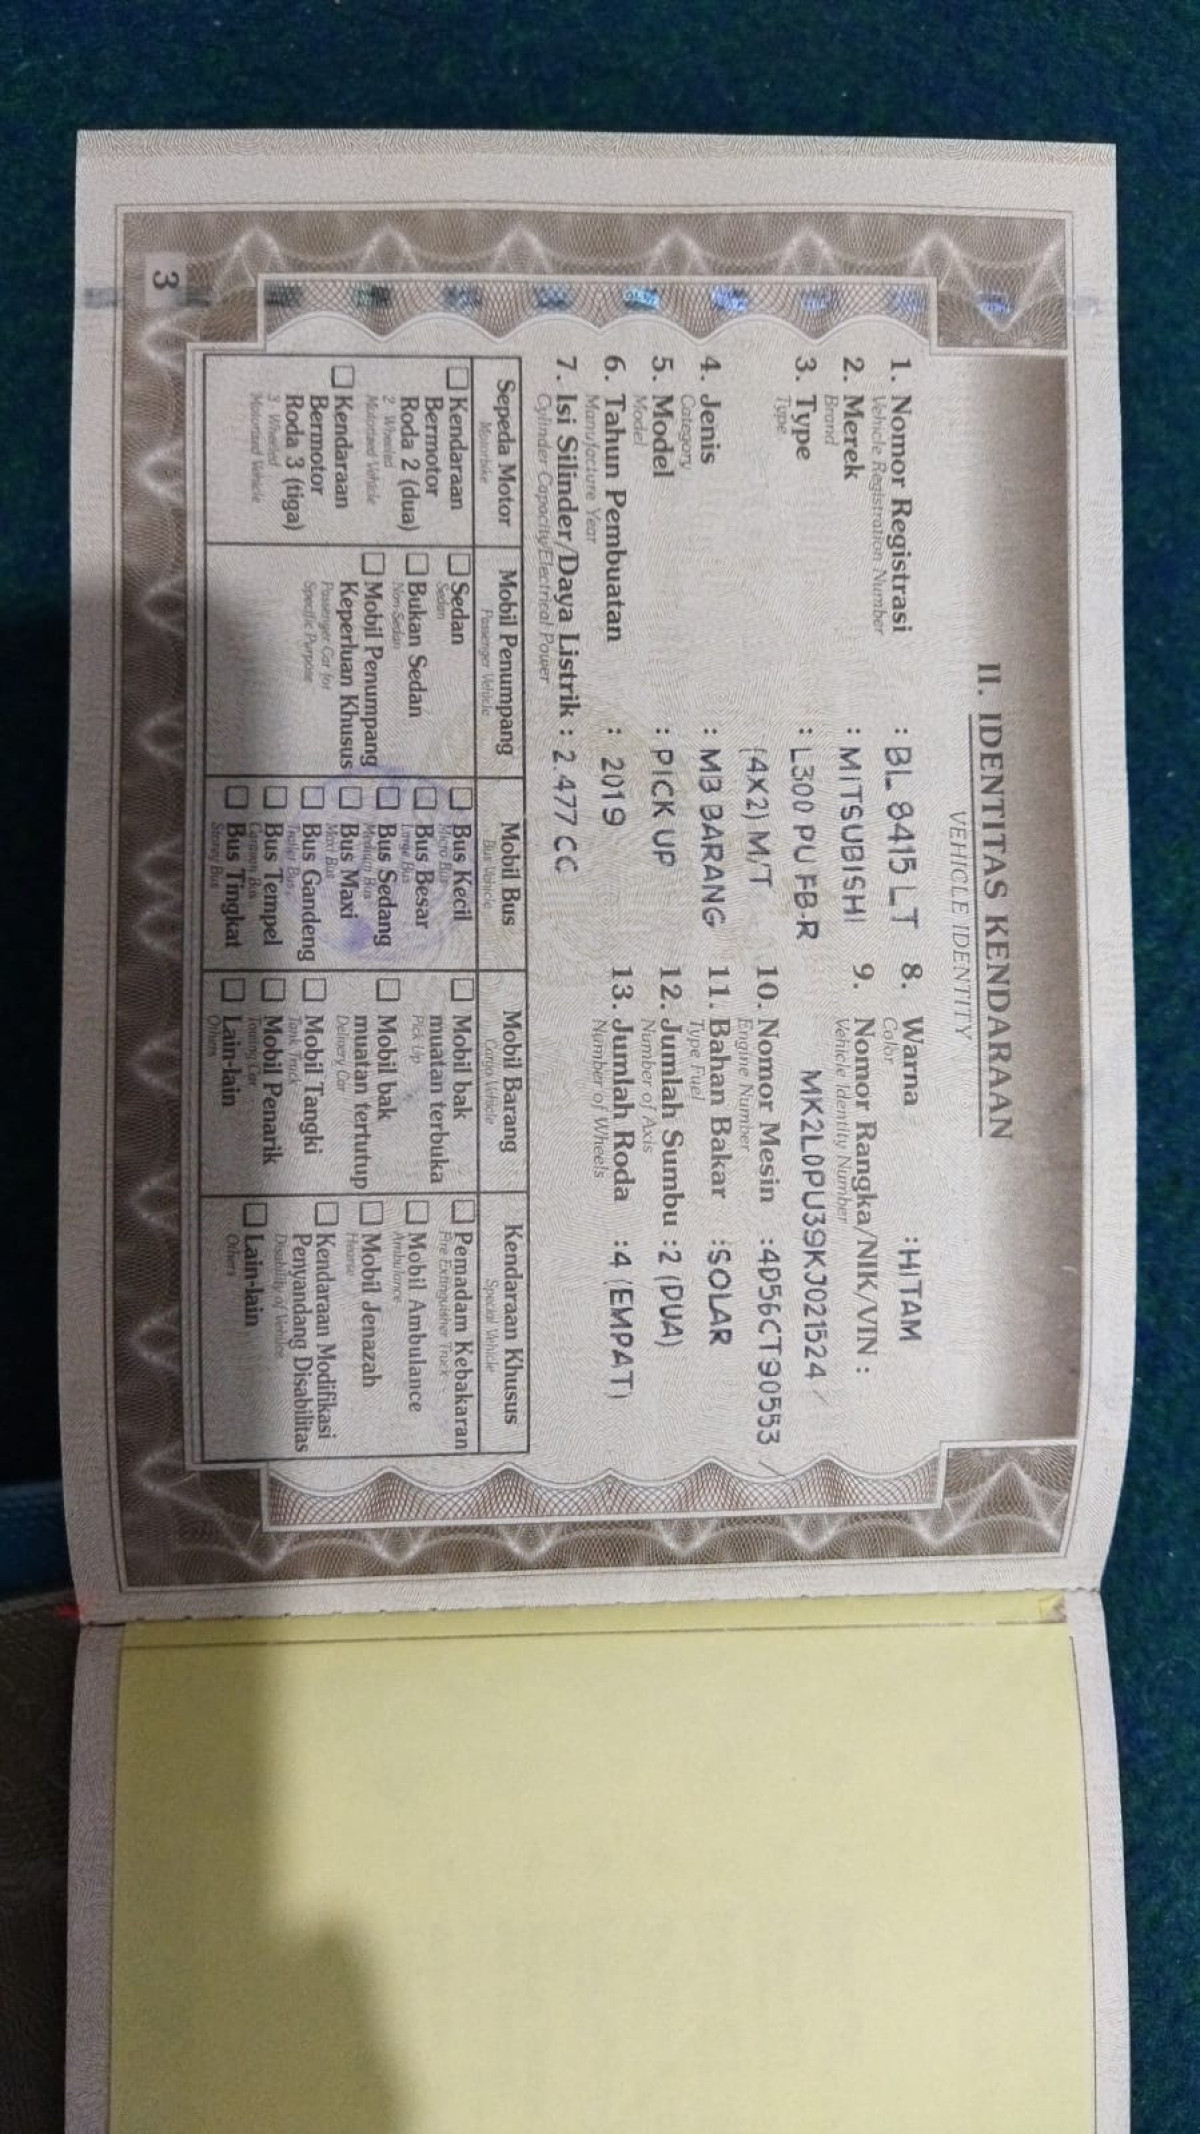 II. IDENTITAS KENDARAAN
VEHICLE IDENTITY
1. Nomor Registrasi : BL 8415 LT
Vehicle Registration Number
2. Merek : MITSUBISHI
Brand
3. Type : L300 PU FB-R
Type
(4X2) M/T
4. Jenis : MB BARANG
Category
5. Model : PICK UP
Model
6. Tahun Pembuatan : 2019
Manufacture Year
7. Isi Silinder/Daya Listrik : 2.477 CC
Cylinder Capacity/Electrical Power
8. Warna : HITAM
Color
9. Nomor Rangka/NIK/VIN :
Vehicle Identity Number
MK2L0PU39KJ021524
10. Nomor Mesin : 4D56CT90553
Engine Number
11. Bahan Bakar : SOLAR
Type Fuel
12. Jumlah Sumbu : 2 (DUA)
Number of Axis
13. Jumlah Roda : 4 (EMPAT)
Number of Wheels
Sepeda Motor
Motorbike
Kendaraan
Bermotor
Roda 2 (dua)
2 Wheeled
Motorized Vehicle
Kendaraan
Bermotor
Roda 3 (tiga)
3 Wheeled
Motorized Vehicle
Mobil Penumpang
Passenger Vehicle
Sedan
Sedan
Bukan Sedan
Non-Sedan
Mobil Penumpang
Keperluan Khusus
Passenger Car for
Specific Purpose
Mobil Bus
Bus Vehicle
Bus Kecil
Micro Bus
Bus Besar
Large Bus
Bus Sedang
Medium Bus
Bus Maxi
Maxi Bus
Bus Gandeng
Trailer Bus
Bus Tempel
Bus
Bus Tingkat
Storey Bus
Mobil Barang
Cargo Vehicle
Mobil bak
muatan terbuka
Pick Up
Mobil bak
muatan tertutup
Delivery Car
Mobil Tangki
Tank Truck
Mobil Penarik
Towing Car
Lain-lain
Others
Kendaraan Khusus
Special Vehicle
Pemadam Kebakaran
Fire Extinguisher Truck
Mobil Ambulance
Ambulance
Mobil Jenazah
Hearse
Kendaraan Modifikasi
Penyandang Disabilitas
Disability of Vehicle
Lain-lain
Others
3